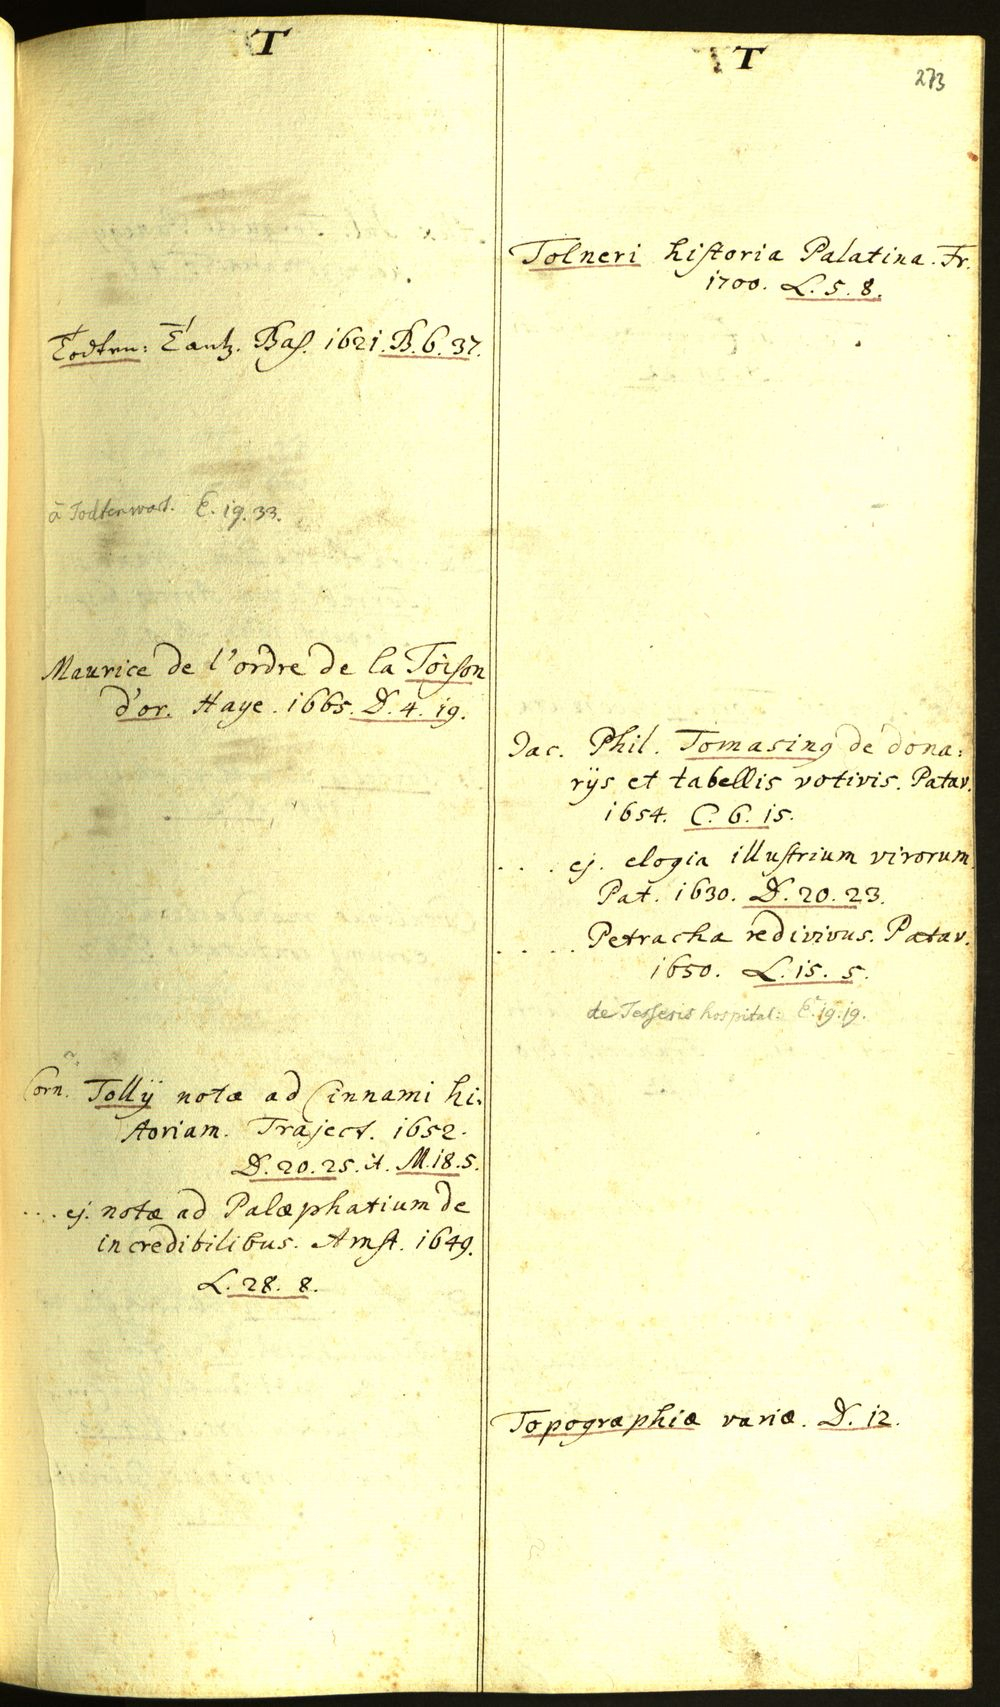 T
Todten: Tantz. Bas. 1621. B. 6. 37.
à Todtenwart. E. 19. 33.
Maurice de l'ordre de la Toison
d'or. Haye. 1665. D. 4. 19.
Corn. Tollij notæ ad Cinnami hi:
storiam. Traject. 1652.
D. 20. 25. it. M. 18. 5.
... ej. notæ ad Palæphatium de
incredibilibus. Amst. 1649.
L. 28. 8.
T
273
Tolneri historia Palatina. Fr.
1700. L. 5. 8.
Jac. Phil. Tomasinq de dona:
rijs et tabellis votivis. Patav.
1654. C. 6. 15.
. . . . ej. elogia illustrium virorum
Pat. 1630. D. 20. 23.
. . . . Petracha redivivus. Patav.
1650. L. 15. 5.
de Tesseris hospital: E. 19. 19.
Topographiæ variæ. D. 12.